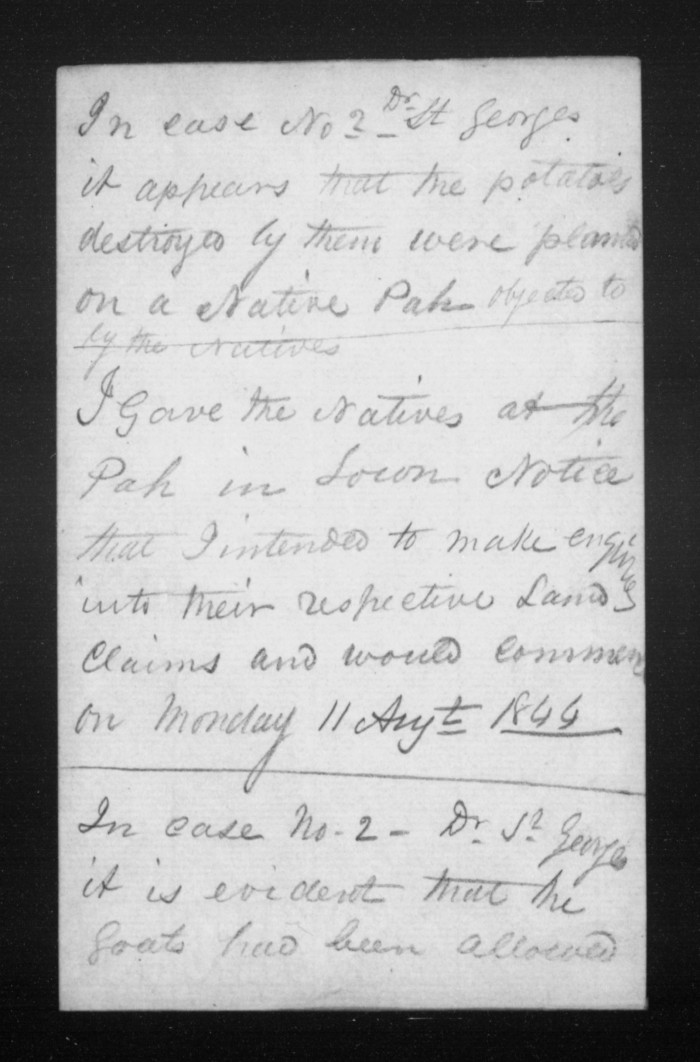 In case No 2 - Dr. St Georges
it appears that the potatoes
destroyed by them were planted
on a Native Pah objected to
by the Natives
I Gave the Natives at the
Pah in Town Notice
that I intended to make enquiries
into their respective Land
Claims and would commence
on Monday 11 Augt 1844
In case No. 2 - Dr. St. Georges
it is evident that the
Goats had been allowed